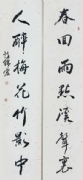 春回雨點溪聲裏
人醉梅花竹影中